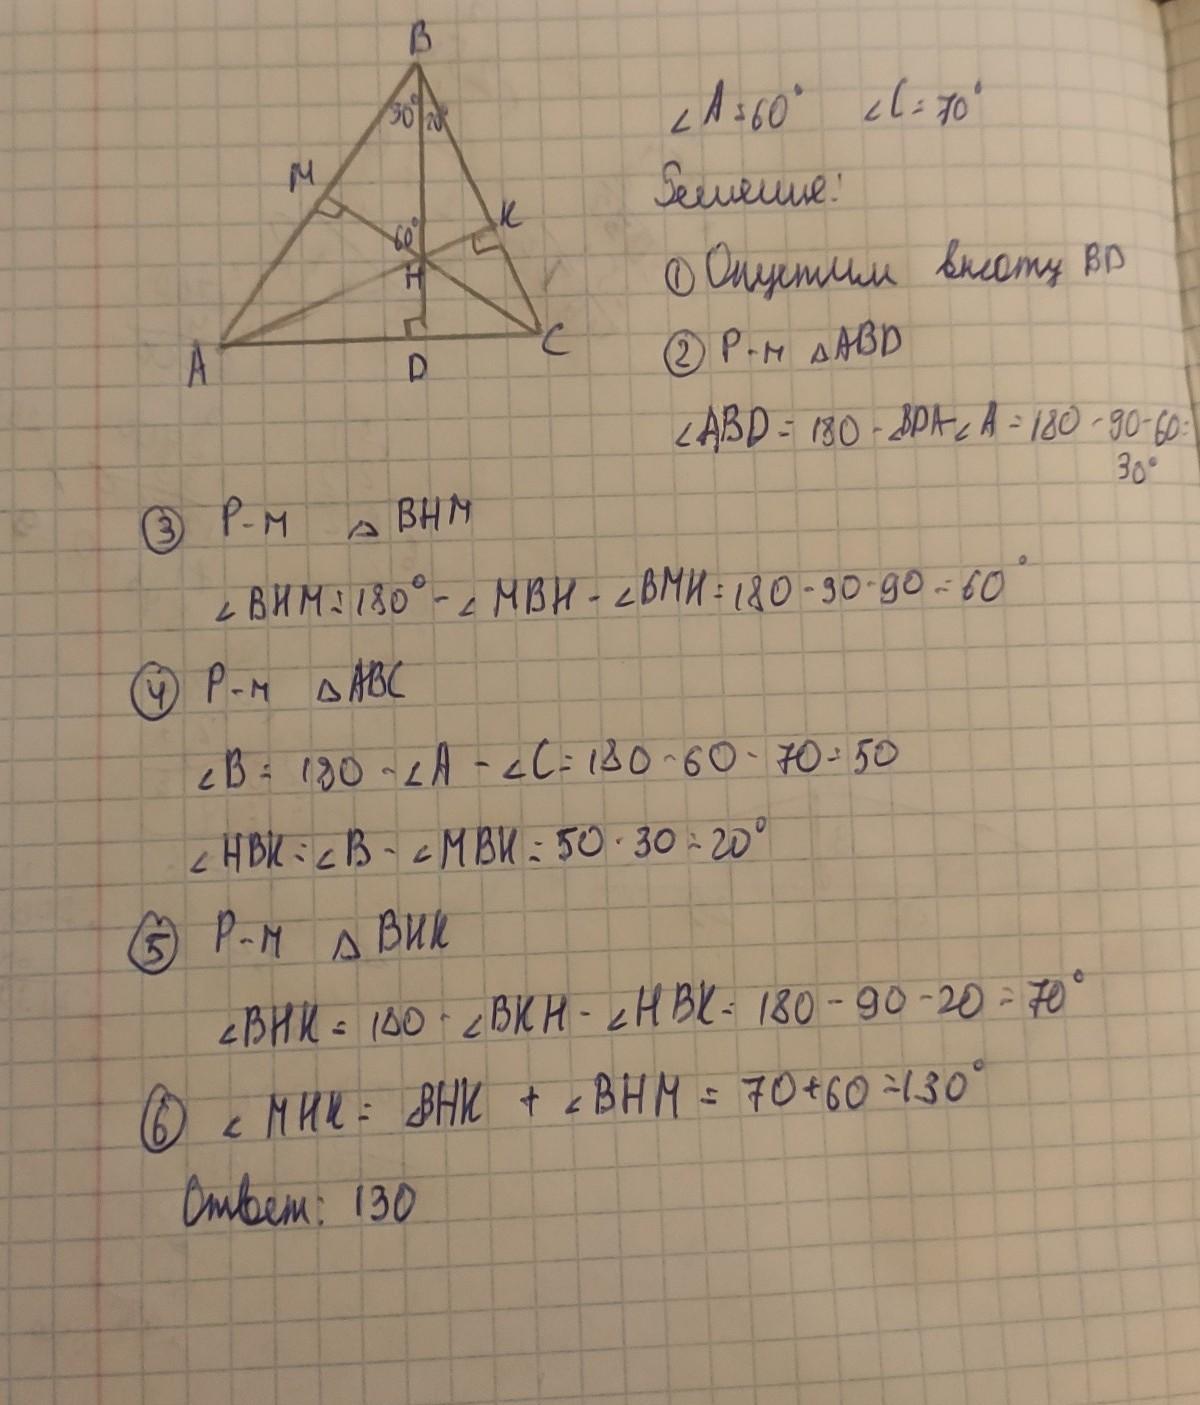 B
30° 20°
∠A=60° ∠C=70°
M
K
60°
H
A
D
C
Решение:
① Опустим высоту BD
② Р-м △ABD
∠ABD = 180 - ∠BDA - ∠A = 180 - 90 - 60 =
30°
③ Р-м △ BHM
∠BHM = 180° - ∠MBH - ∠BMH = 180 - 30 - 90 = 60°
④ Р-м △ABC
∠B = 180 - ∠A - ∠C = 180 - 60 - 70 = 50
∠HBK = ∠B - ∠MBH = 50 - 30 = 20°
⑤ Р-м △ BHK
∠BHK = 180 - ∠BKH - ∠HBK = 180 - 90 - 20 = 70°
⑥ ∠MHK = ∠BHK + ∠BHM = 70+60 = 130°
Ответ: 130